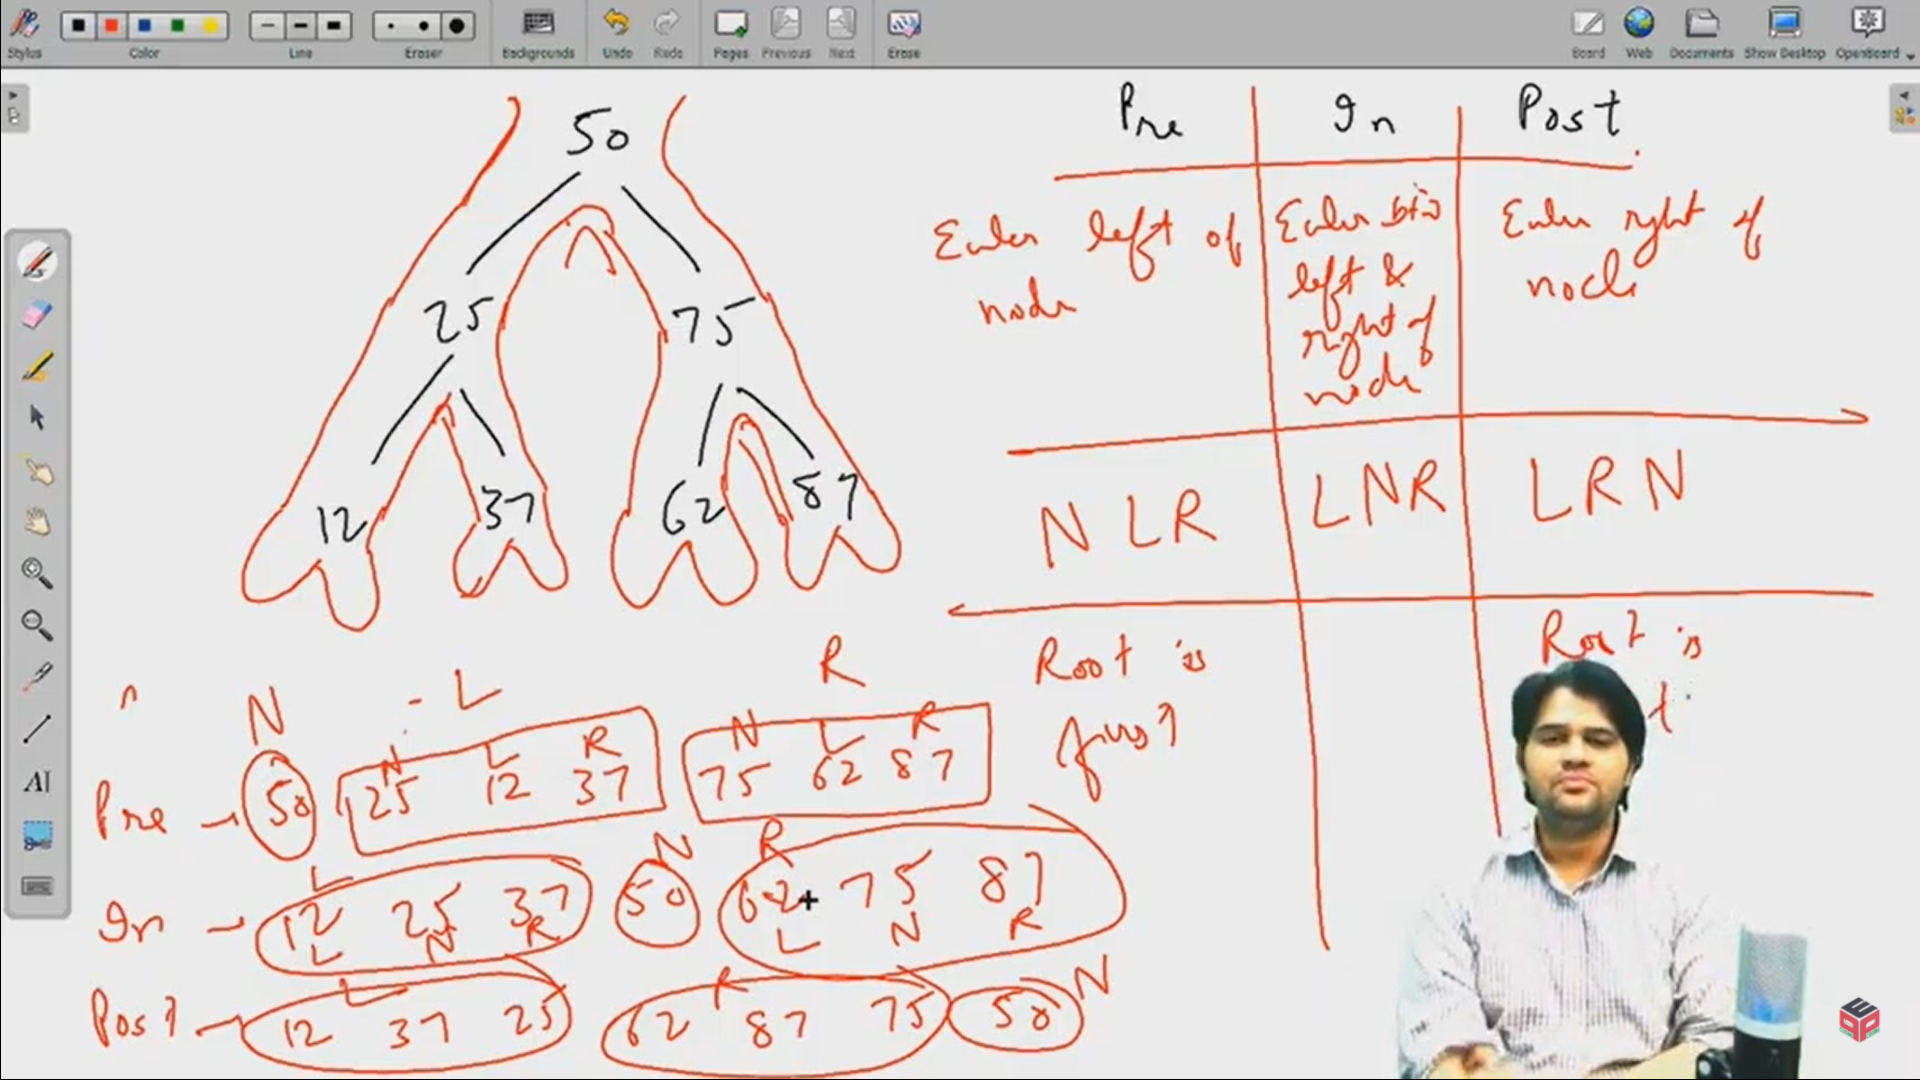 Stylus
Color
Line
Eraser
Backgrounds
Undo
Redo
Pages
Previous
Next
Erase
Board
Web
Documents
Show Desktop
OpenBoard
50
25 75
12 37 62 87
Pre In Post
Euler left of node
Euler b/w left & right of node
Euler right of node
N L R
L N R
L R N
Root is first
Root is
t
N L R
N L R N L R
Pre → 50 25 12 37 75 62 87
L N R
In - 12 25 37 50 62 75 87
L N R L N R
L R N
Post - 12 37 25 62 87 75 50
AI